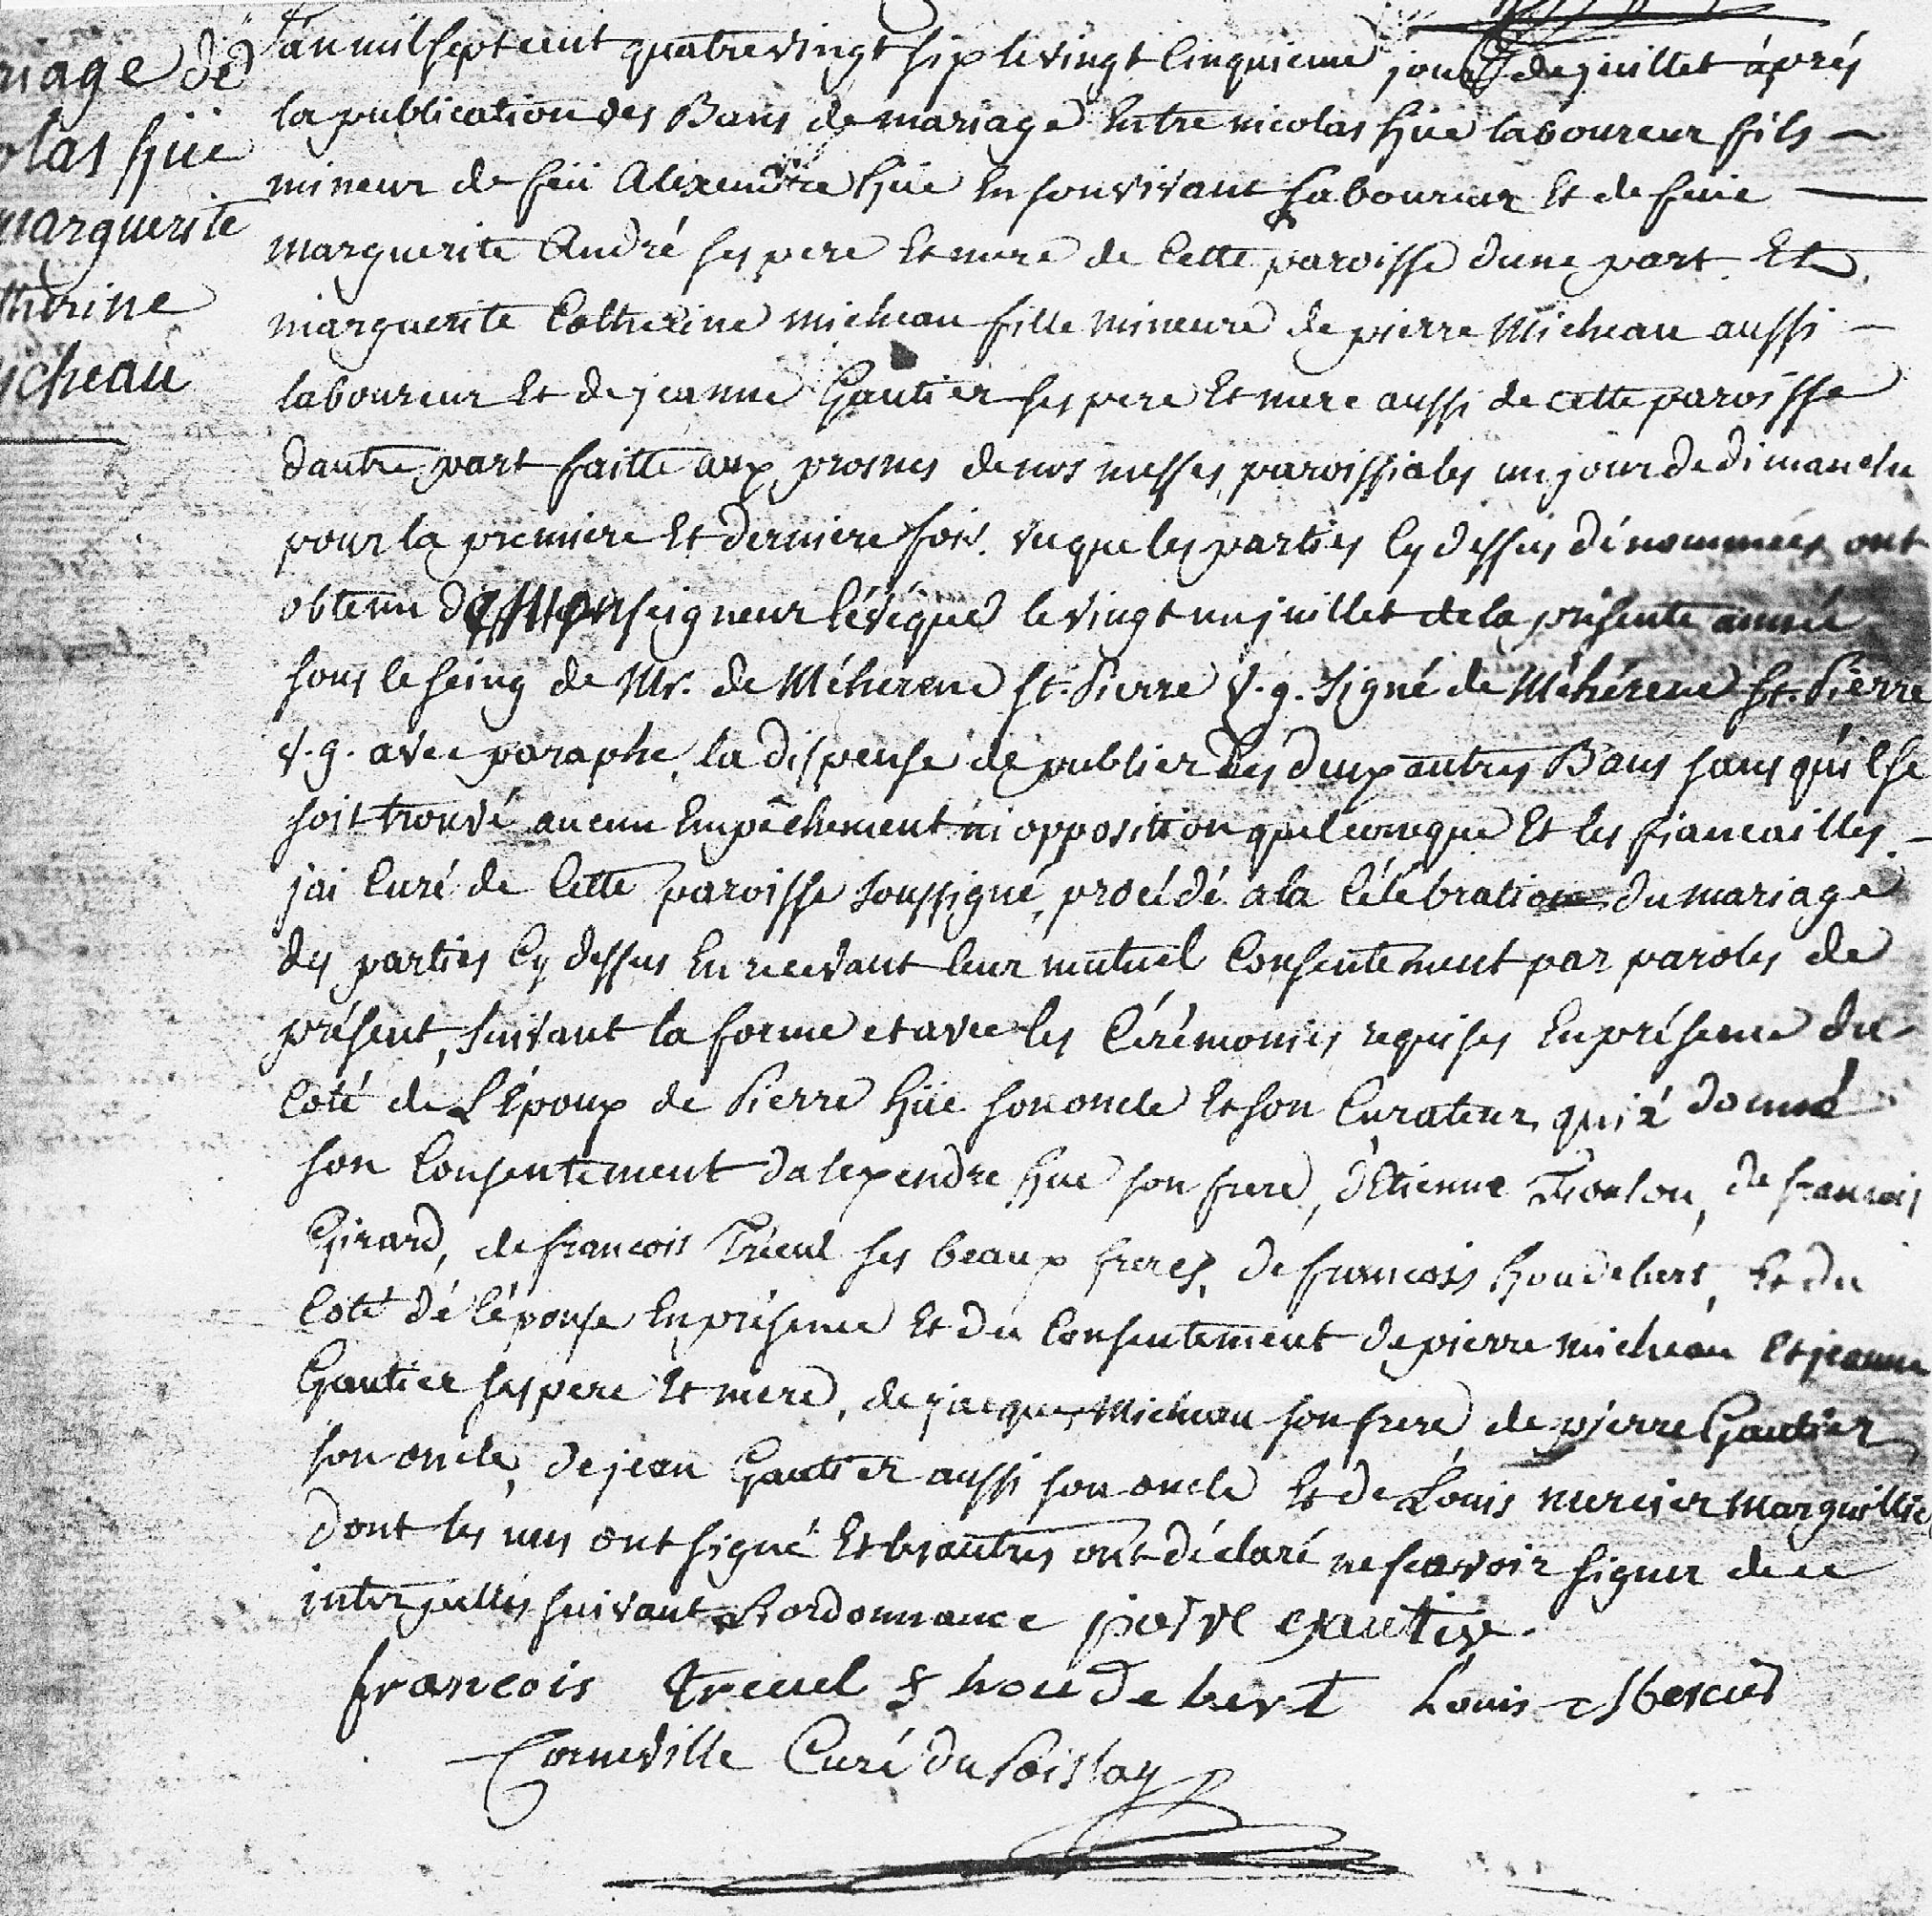 riage de
olas hüe
marguerite
therine
icheau
L'an mil sept cent quatre vingt six le vingt cinquieme jour de juillet après
la publication des Bans de mariage Entre nicolas hüe laboureur fils
mineur de feü Alexendre hüe En son vivant Laboureur Et de feüe
marguerite André ses pere Et mere de Cette paroisse dune part. Et
marguerite Catherine micheau fille mineure de pierre Micheau aussi
laboureur Et de jeanne Gautier ses pere Et mere aussi de cette paroisse
dautre part faitte aux prosnes de nos messes paroissiales un jour de dimanche
pour la premiere Et derniere fois. vu que les parties Cy dessus dénommées ont
obtenu de Monseigneur lévêque le vingt un juillet de la présente année
sous le seing de Mr. de Méhérenc St. Pierre v.g. Signé de Méhérenc St. Pierre
v.g. avec paraphe, la dispense de publier les deux autres Bans sans qu'il se
soit trouvé aucun Empêchement ni opposition quelconque Et les fiancailles
jai Curé de Cette paroisse soussigné, procédé a la Célébration du mariage
des parties Cy dessus En recevant leur mutuel Consentement par paroles de
présent, suivant la forme et avec les Cérémonies requises En présence du
Coté de L'Epoux de Pierre hüe son oncle Et son Curateur qui à donné
son Consentement dalexendre hüe son frere, d'Etienne de francois
Girard, de francois Tréeul ses beaux freres, de francois houdebert, Et du
Coté de l'épouse En présence Et du Consentement de pierre micheau Et jeanne
Gautier ses pere Et mere, de jacques Micheau son frere de pierre Gautier
son oncle, de jean Gautier aussi son oncle Et de Louis mercier marguillie
dont les uns ont signé Et les autres ont déclaré ne scavoir signer de ce
interpellés suivant L'ordonnance pierre gautier
francois treuel f houdebert Louis Mercier
Corneville Curé du Poislay